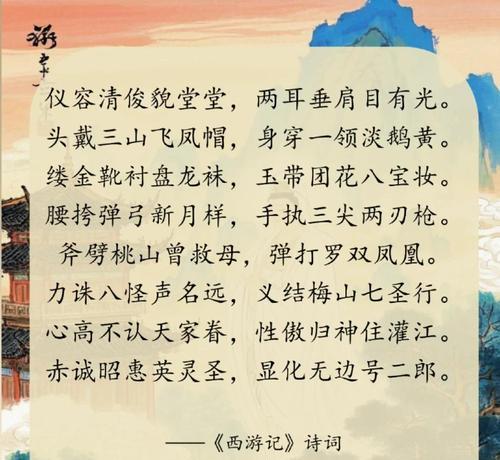 仪容清俊貌堂堂，两耳垂肩目有光。
头戴三山飞凤帽，身穿一领淡鹅黄。
缕金靴衬盘龙袜，玉带团花八宝妆。
腰挎弹弓新月样，手执三尖两刃枪。
斧劈桃山曾救母，弹打罗双凤凰。
力诛八怪声名远，义结梅山七圣行。
心高不认天家眷，性傲归神住灌江。
赤诚昭惠英灵圣，显化无边号二郎。
——《西游记》诗词